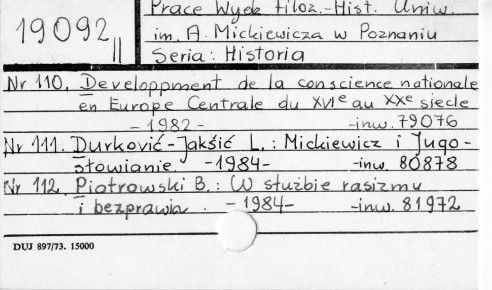 19092 II
Prace Wydz. Filoz.-Hist. Uniw.
im. A. Mickiewicza w Poznaniu
Seria: Historia
Nr 110. Developpment de la conscience nationale
en Europe Centrale du XVIe au XXe siecle
-1982- -inw. 79076
Nr 111. Durković-Jakšić L.: Mickiewicz i Jugo-
słowianie. -1984- -inw. 80878
Nr 112. Piotrowski B.: W służbie rasizmu
i bezprawia. -1984- -inw. 81972
DUJ 897/73. 15000